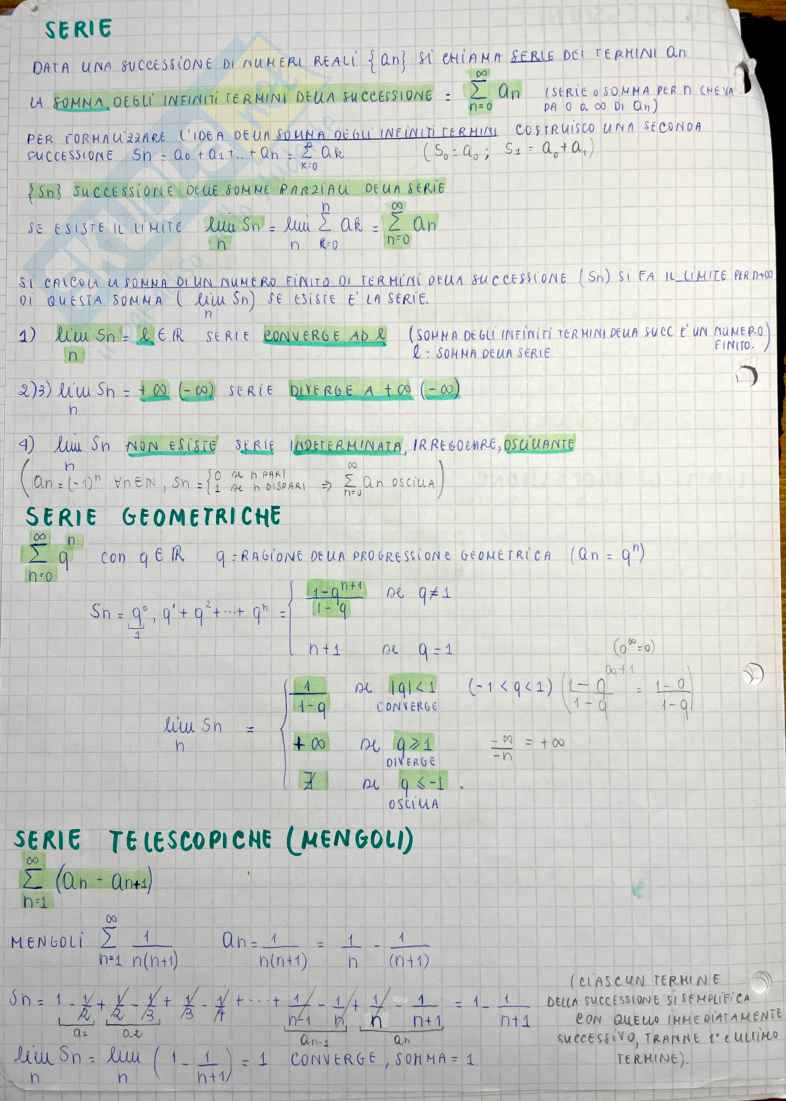 SERIE
DATA UNA SUCCESSIONE DI NUMERI REALI {an} SI CHIAMA SERIE DEI TERMINI an
LA SOMMA DEGLI INFINITI TERMINI DELLA SUCCESSIONE = ∞ Σ n=0 an (SERIE O SOMMA PER n CHE VA
DA 0 A ∞ DI an)
PER FORMALIZZARE L'IDEA DELLA SOMMA DEGLI INFINITI TERMINI COSTRUISCO UNA SECONDA
SUCCESSIONE Sn = a0 + a1 + ... + an = Σ k=0 ak (S0 = a0 ; S1 = a0 + a1)
{Sn} SUCCESSIONE DELLE SOMME PARZIALI DELLA SERIE
SE ESISTE IL LIMITE lim n Sn = lim n n Σ k=0 ak = ∞ Σ n=0 an
SI CALCOLA LA SOMMA DI UN NUMERO FINITO DI TERMINI DELLA SUCCESSIONE (Sn) SI FA IL LIMITE PER n→∞
DI QUESTA SOMMA ( lim n Sn) SE ESISTE E' LA SERIE.
1) lim n Sn = l ∈ ℝ SERIE CONVERGE AD l (SOMMA DEGLI INFINITI TERMINI DELLA SUCC E' UN NUMERO
FINITO.)
l = SOMMA DELLA SERIE
2)3) lim n Sn = +∞ (-∞) SERIE DIVERGE A +∞ (-∞)
4) lim n Sn NON ESISTE SERIE INDETERMINATA, IRREGOLARE, OSCILLANTE
(an = (-1)^n ∀n∈ℕ, Sn = { 0 se n PARI
1 se n DISPARI ⇒ ∞ Σ n=0 an OSCILLA)
SERIE GEOMETRICHE
∞ Σ n=0 q^n con q ∈ ℝ q = RAGIONE DELLA PROGRESSIONE GEOMETRICA (an = q^n)
Sn = q^0, q^1 + q^2 + ... + q^n = { (1-q^(n+1))/(1-q) se q≠1
1
n+1 se q=1
(0^∞=0)
lim n Sn = { 1/(1-q) se |q|<1 (-1<q<1) ((1-q^(∞+1))/(1-q) = (1-0)/(1-q))
CONVERGE
+∞ se q≥1 -∞/-n = +∞
DIVERGE
∄ se q≤-1 .
OSCILLA
SERIE TELESCOPICHE (MENGOLI)
∞ Σ n=1 (an - an+1)
MENGOLI ∞ Σ n=1 1/(n(n+1)) an = 1/(n(n+1)) = 1/n - 1/(n+1)
Sn = 1 - 1/2 + 1/2 - 1/3 + 1/3 - 1/4 + ... + 1/(n-1) - 1/n + 1/n - 1/(n+1) = 1 - 1/(n+1)
an-1 an
(CIASCUN TERMINE
DELLA SUCCESSIONE SI SEMPLIFICA
CON QUELLO IMMEDIATAMENTE
SUCCESSIVO, TRANNE 1° E ULTIMO
TERMINE).
lim n Sn = lim n (1 - 1/(n+1)) = 1 CONVERGE, SOMMA = 1